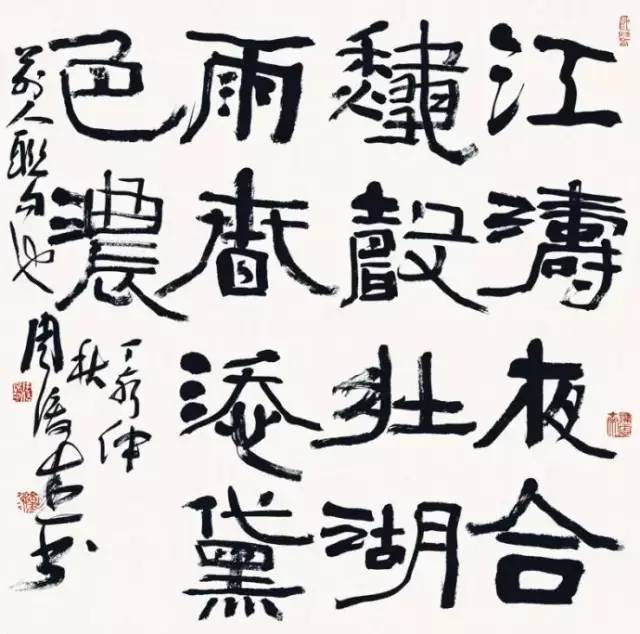 江濤夜合
聲壯湖
雨春添黛
色濃
前人聯句也
丁酉仲
秋
周俊杰書